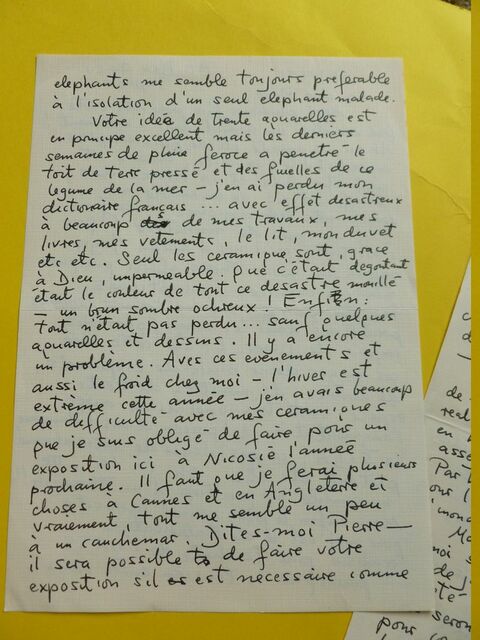 elephants me semble toujours preferable
à l'isolation d'un seul elephant malade.
Votre idée de trente aquarelles est
en principe excellent mais les derniers
semaines de pluie feroce a penetré le
toit de terre pressé et des fuelles de ce
legume de la mer – j'en ai perdu mon
dictionaire français ... avec effet desastreux
à beaucoup de mes travaux, mes
livres, mes vetements, le lit, mon duvet
etc etc. Seul les ceramique sont, grace
à Dieu, impermeable. Que c'était degoutant
était le couleur de tout ce desastre mouillé
– un brun sombre ochreux! Enfin:
tout n'était pas perdu... sauf quelques
aquarelles et dessins. Il y a encore
un problème. Aves ces evenements et
aussi le froid chez moi – l'hiver est
extrème cette année – j'en avais beaucoup
de difficulté avec mes ceramiques
que je suis obligé de faire pour un
exposition ici à Nicosie l'année
prochaine. Il faut que je ferai plusieurs
choses à Cannes et en Angleterre et
vraiement, tout me semble un peu
à un cauchemar. Dites-moi Pierre –
il sera possible de faire votre
exposition s'il est necessaire comme
de
real
en
assé
Par
pour l
l'mond
moi s
de j
ité
seron
pour